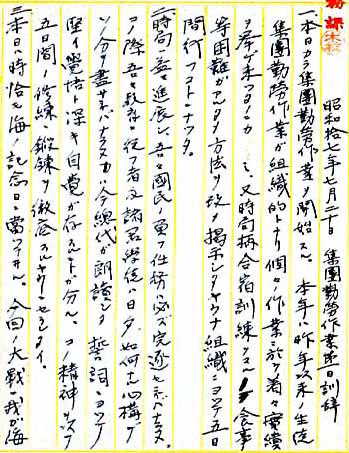 務課
昭和拾七年七月二十日 集團勤勞作業第一日訓辞
一、本日カラ集團勤勞作業ヲ開始スル。本年ハ昨年以来ノ生徒
集團勤勞作業が組織的トナリ個々ノ作業ニ於テ着々實績
ヲ挙ゲ来ツタノ 、又時局柄合宿訓練ヲスル 食事
等困難ガ 方法ヲ改メ掲示シタヤウナ組織ニヨツテ五日
間行フコトニナツタ。
二、時局益々進展シ、吾々國民ノ負フ任務ハ必ズ完遂セネバナラヌ。
コノ際吾々教育ニ従フ者及諸君學徒ハ日夕如何ナル心構デ
ソノ分ヲ盡サネバナラヌカハ今総代が朗讀シタ誓ノ詞ニヨツテ
堅イ覺悟ト深キ自覺が存スルコトが分ル。コノ精神ヲ以テ
五日間ノ修練ト鍛錬ヲ徹底スルヤウニセラレタイ。
三、本日ハ時恰モ海ノ記念日ニ當ツテヰル。今回ノ大戰ニ我が海